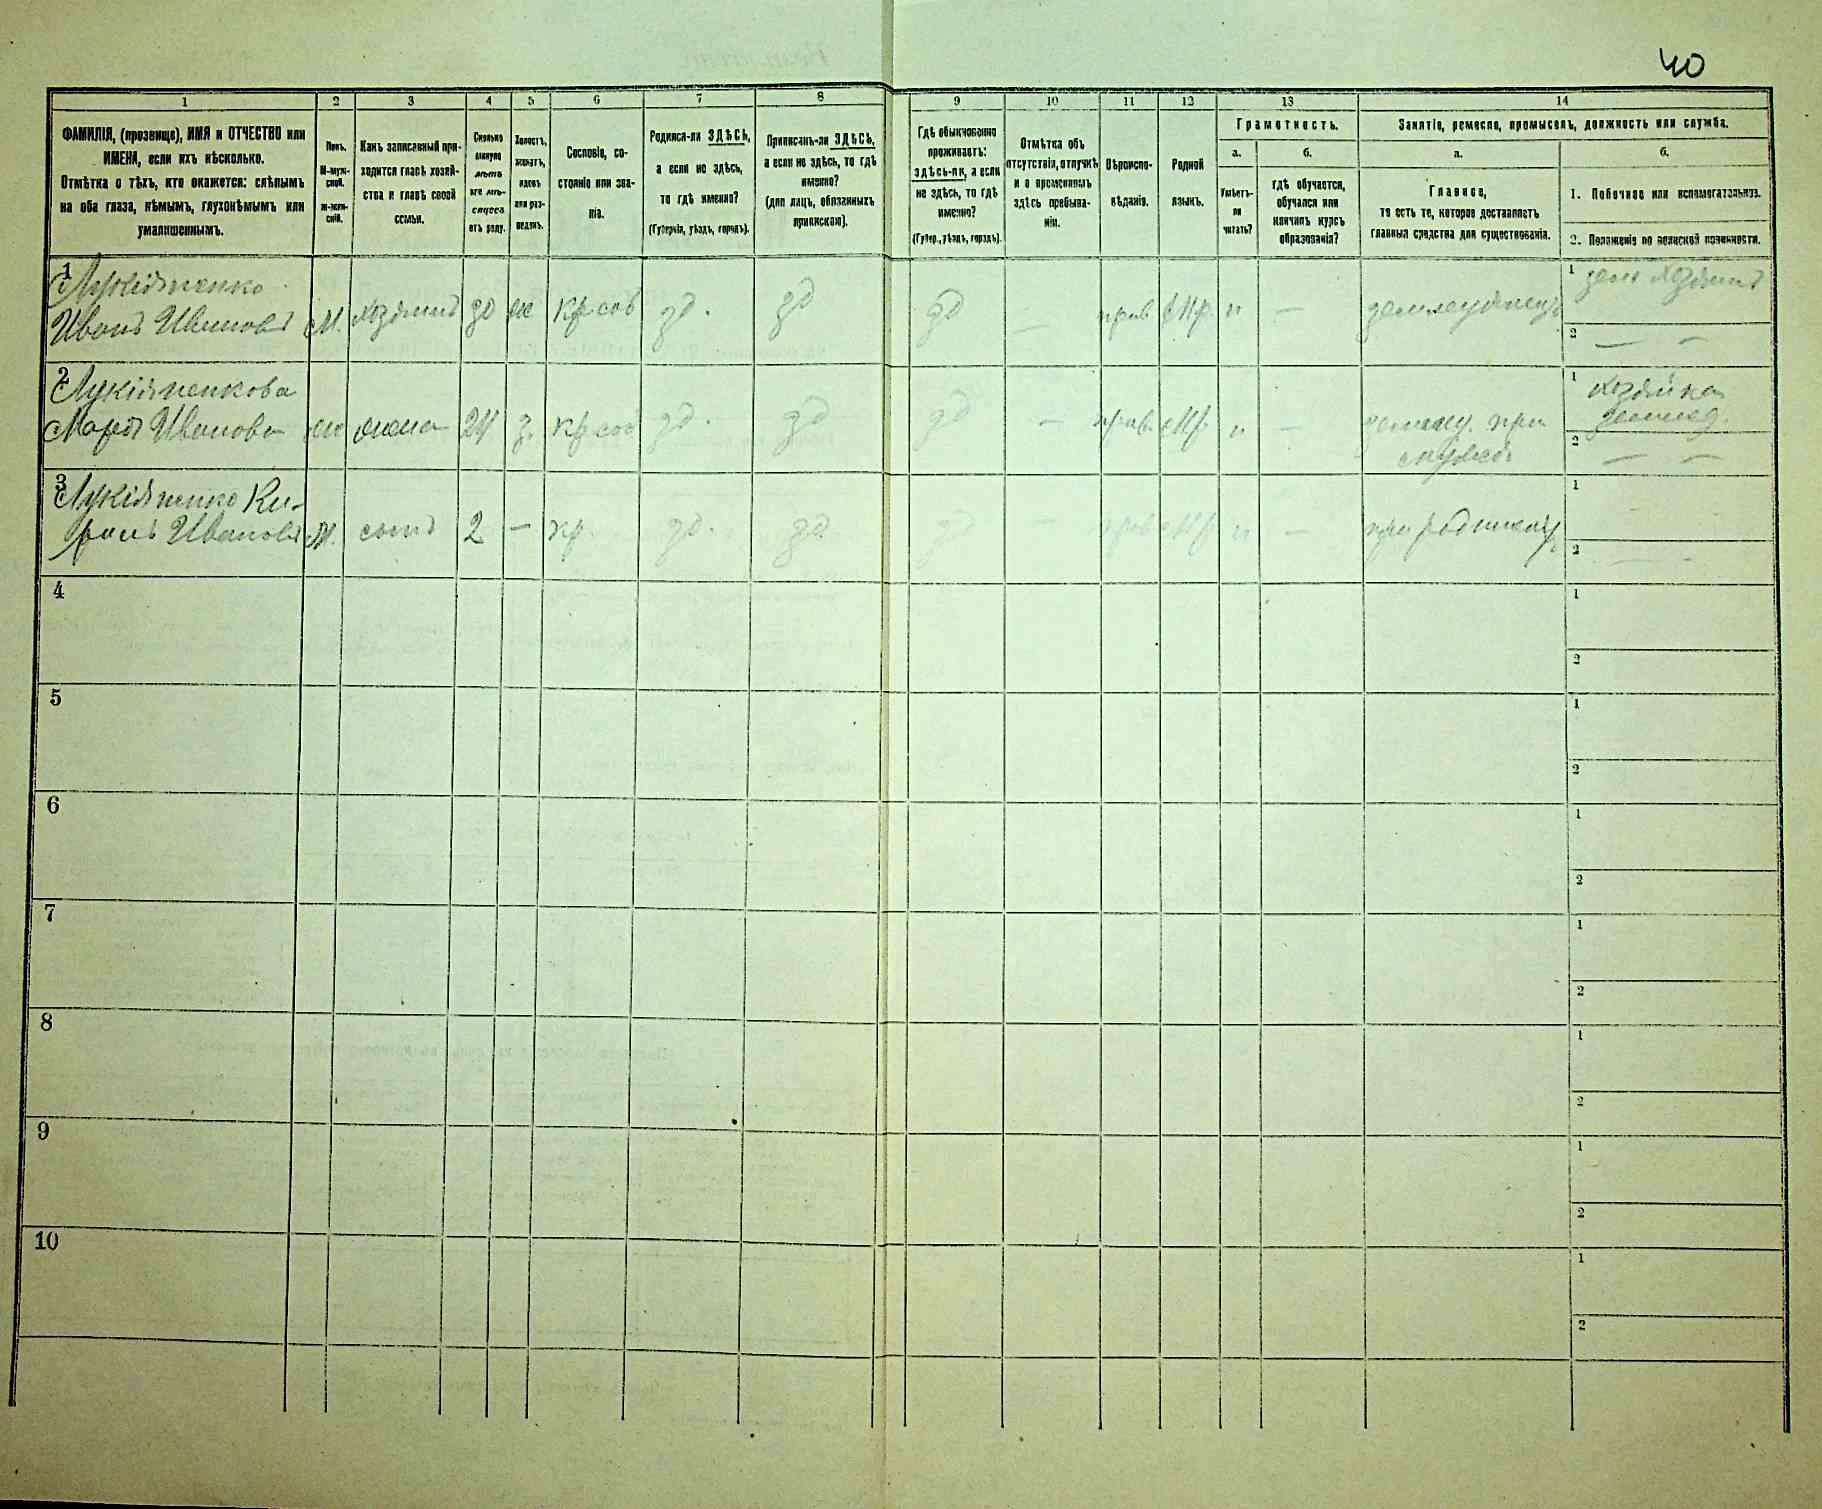 40
1 2 3 4 5 6 7 8 9 10 11 12 13 14
ФАМИЛІЯ, (прозвище), ИМЯ и ОТЧЕСТВО или
ИМЕНА, если ихъ нѣсколько.
Отмѣтка о тѣхъ, кто окажется: слѣпымъ
на оба глаза, нѣмымъ, глухонѣмымъ или
умалишеннымъ.
Полъ.
М-муж-
ской.
ж-жен-
скій.
Какъ записанный при-
ходится главѣ хозяй-
ства и главѣ своей
семьи.
Сколько
минуло
лѣтъ
или мѣ-
сяцевъ
отъ роду.
Холостъ,
женатъ,
вдовъ
или раз-
веденъ.
Сословіе, со-
стояніе или зва-
ніе.
Родился-ли ЗДѢСЬ,
а если не здѣсь,
то гдѣ именно?
(Губернія, уѣздъ, городъ).
Приписанъ-ли ЗДѢСЬ,
а если не здѣсь, то гдѣ
именно?
(для лицъ, обязанныхъ
припискою).
Гдѣ обыкновенно
проживаетъ:
здѣсь-ли, а если
не здѣсь, то гдѣ
именно?
(Губер., уѣздъ, городъ).
Отмѣтка объ
отсутствіи, отлучкѣ
и о временномъ
здѣсь пребыва-
ніи.
Вѣроиспо-
вѣданіе.
Родной
языкъ.
Грамотность.
а. б.
Умѣетъ-
ли
читать?
гдѣ обучается,
обучался или
кончилъ курсъ
образованія?
Занятіе, ремесло, промыселъ, должность или служба.
а. б.
Главное,
то есть то, которое доставляетъ
главныя средства для существованія.
1. Побочное или вспомогательное.
2. Положеніе по воинской повинности.
1 Лукіяненко
Иванъ Ивановъ М. хозяинъ 30 ж кр соб зд. зд зд — прав МР. н — земледѣлецъ
1 зем хозяинъ
2 — —
2 Лукіяненкова
Марія Иванова ж жена 24 з. кр соб зд. зд зд — прав. МР. н — земледѣ. при
мужѣ
1 хозяйка
землед.
2 — —
3 Лукіяненко Ки-
рилъ Ивановъ М. сынъ 2 — кр. зд. зд. зд — прав МР н — при родителяхъ
1
2 — —
4 1
2
5 1
2
6 1
2
7 1
2
8 1
2
9 1
2
10 1
2